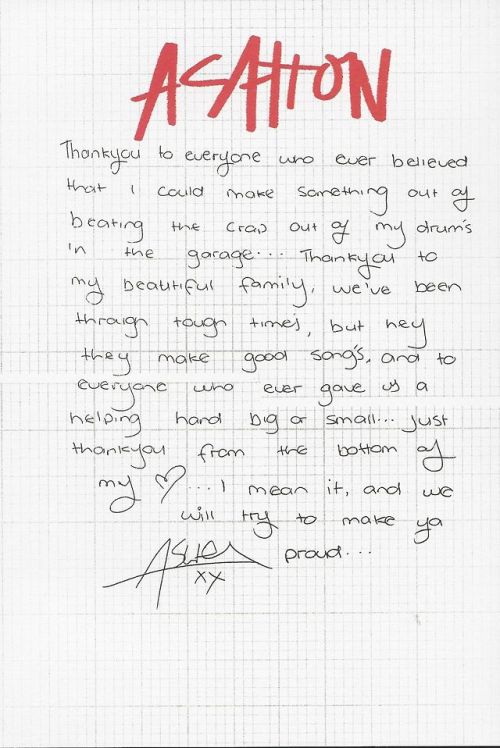 ASHTON
Thankyou to everyone who ever believed
that I could make something out of
beating the crap out of my drum's
in the garage... Thankyou to
my beautiful family, we've been
through tough time's, but hey
they make good song's, and to
everyone who ever gave us a
helping hand big or small... just
thankyou from the bottom of
my ♡... I mean it, and we
will try to make ya
proud...
Ashton
xx